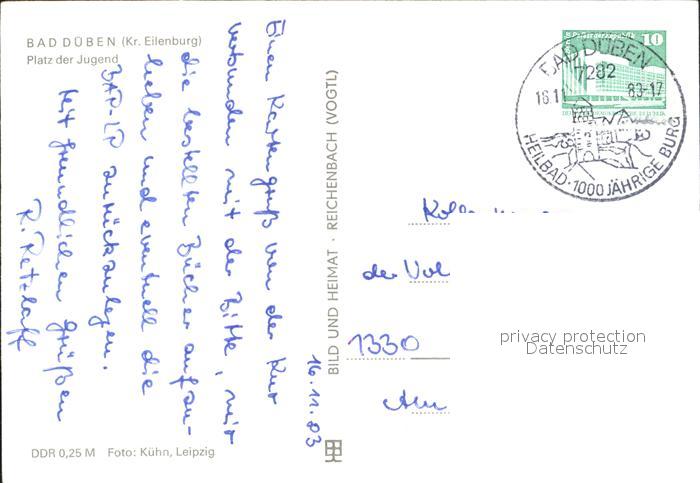 BAD DÜBEN (Kr. Eilenburg)
Platz der Jugend
16.11.83
Einen Kartengruß von der Kur
verbunden mit der Bitte, mir
die bestellten Bücher aufzu-
heben und eventuell die
BAP-LP zurückzulegen.
Mit freundlichen Grüßen
R. Retzlaff
DDR 0,25 M Foto: Kühn, Leipzig
BILD UND HEIMAT · REICHENBACH (VOGTL)
10
BAD DÜBEN
7282
16.11. 83-17
HEILBAD · 1000 JÄHRIGE BURG
der Vol
1330
Am
privacy protection
Datenschutz